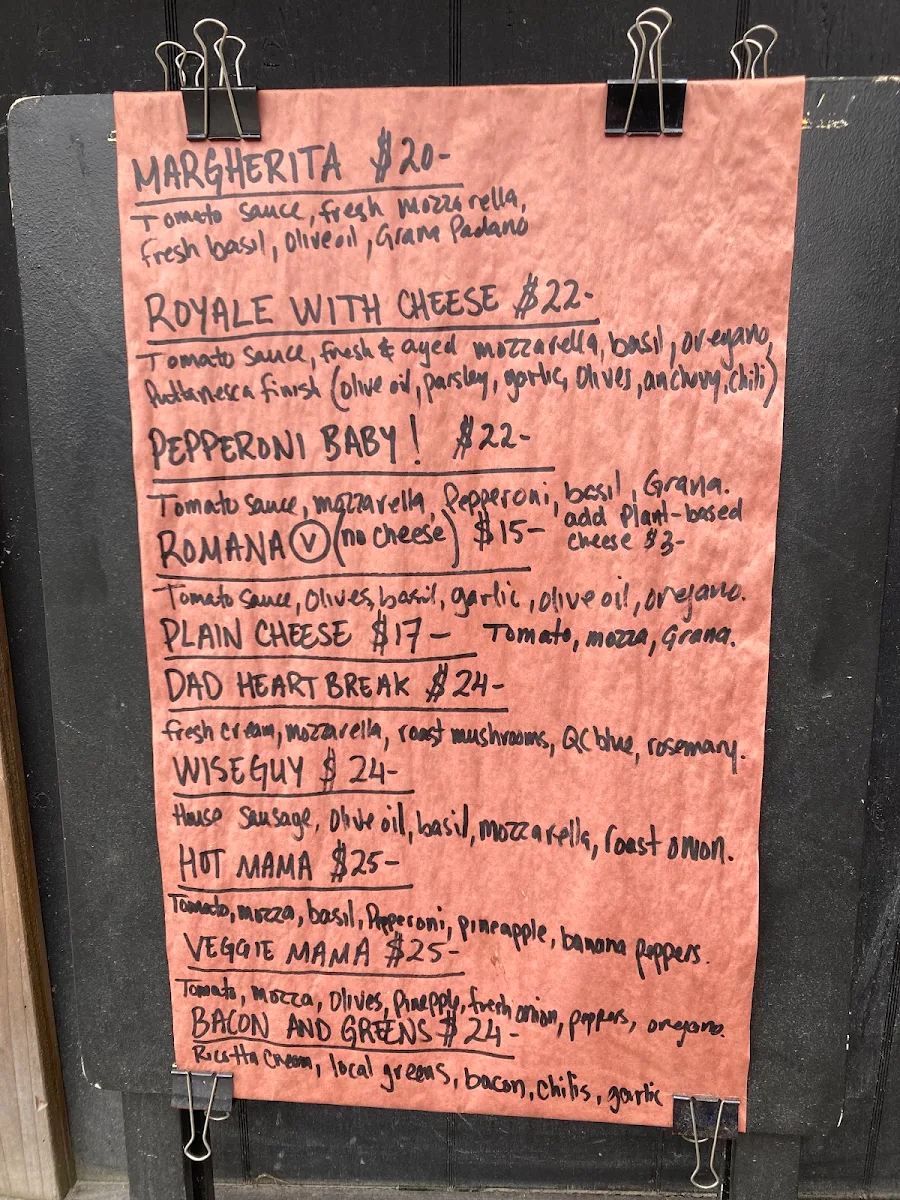 MARGHERITA $20-
Tomato sauce, fresh mozzarella,
fresh basil, olive oil, Grana Padano
ROYALE WITH CHEESE $22-
Tomato sauce, fresh & aged mozzarella, basil, oregano,
Puttanesca finish (olive oil, parsley, garlic, olives, anchovy, chili)
PEPPERONI BABY! $22-
Tomato sauce, mozzarella, Pepperoni, basil, Grana.
ROMANA V (no cheese) $15-
add plant-based
cheese $3-
Tomato sauce, Olives, basil, garlic, olive oil, oregano.
PLAIN CHEESE $17- Tomato, mozza, Grana.
DAD HEART BREAK $24-
fresh cream, mozzarella, roast mushrooms, QC blue, rosemary.
WISEGUY $24-
House sausage, Olive oil, basil, mozzarella, roast onion.
HOT MAMA $25-
Tomato, mozza, basil, Pepperoni, pineapple, banana peppers.
VEGGIE MAMA $25-
Tomato, mozza, Olives, Pinepple, fresh onion, peppers, oregano.
BACON AND GREENS $24-
Ricotta Cream, local greens, bacon, chilis, garlic